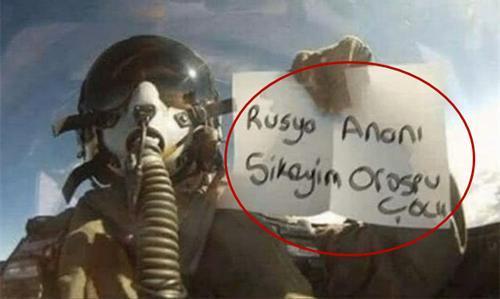 Rusya Ananı
Sikeyim Orospu
Çocu